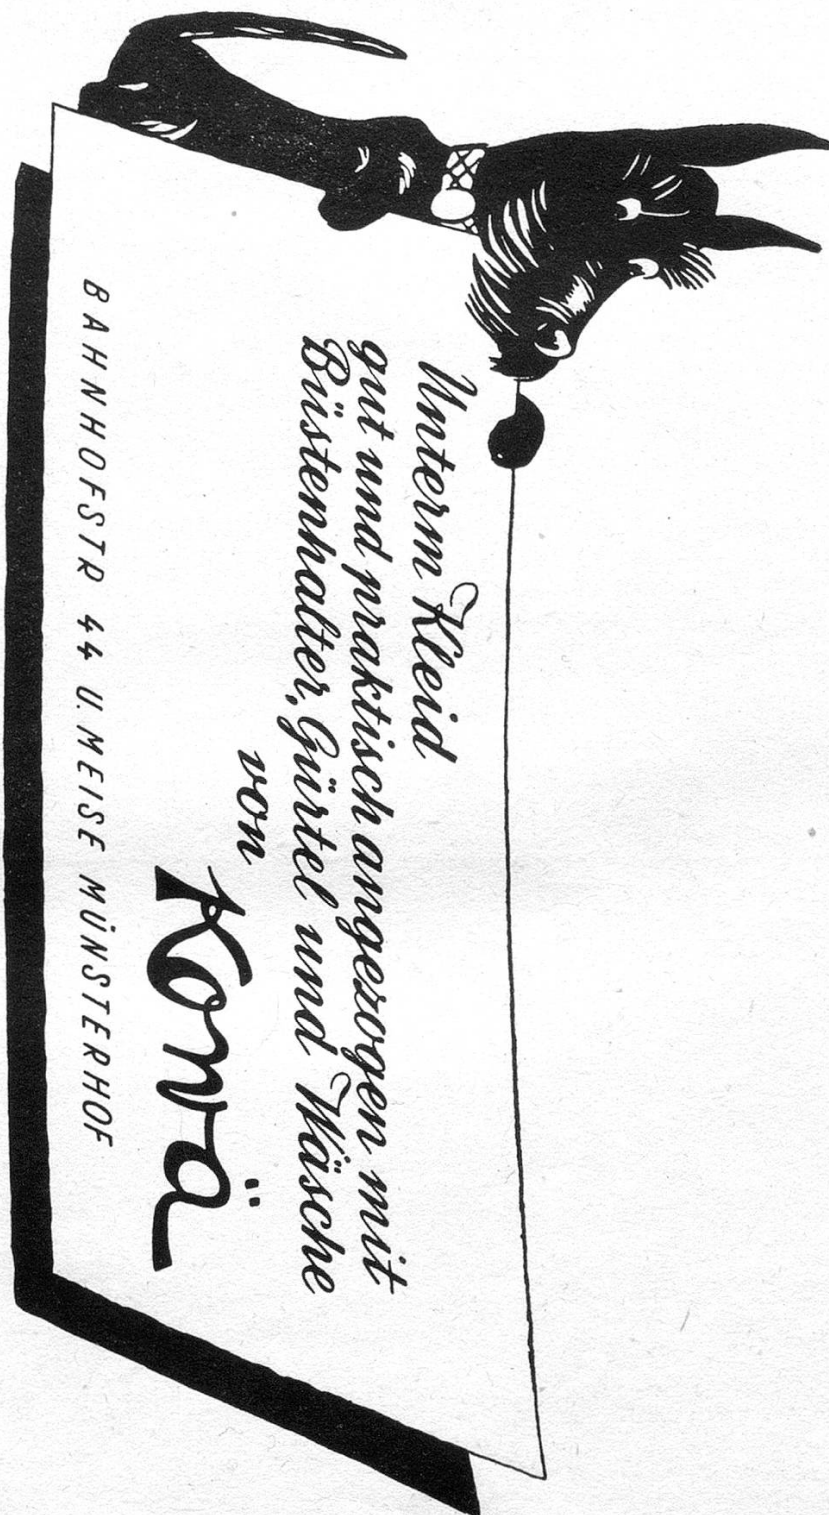 Unterm Kleid
gut und praktisch angezogen mit
Büstenhalter, Gürtel und Wäsche
von
Konrä
BAHNHOFSTR 44 U. MEISE MÜNSTERHOF